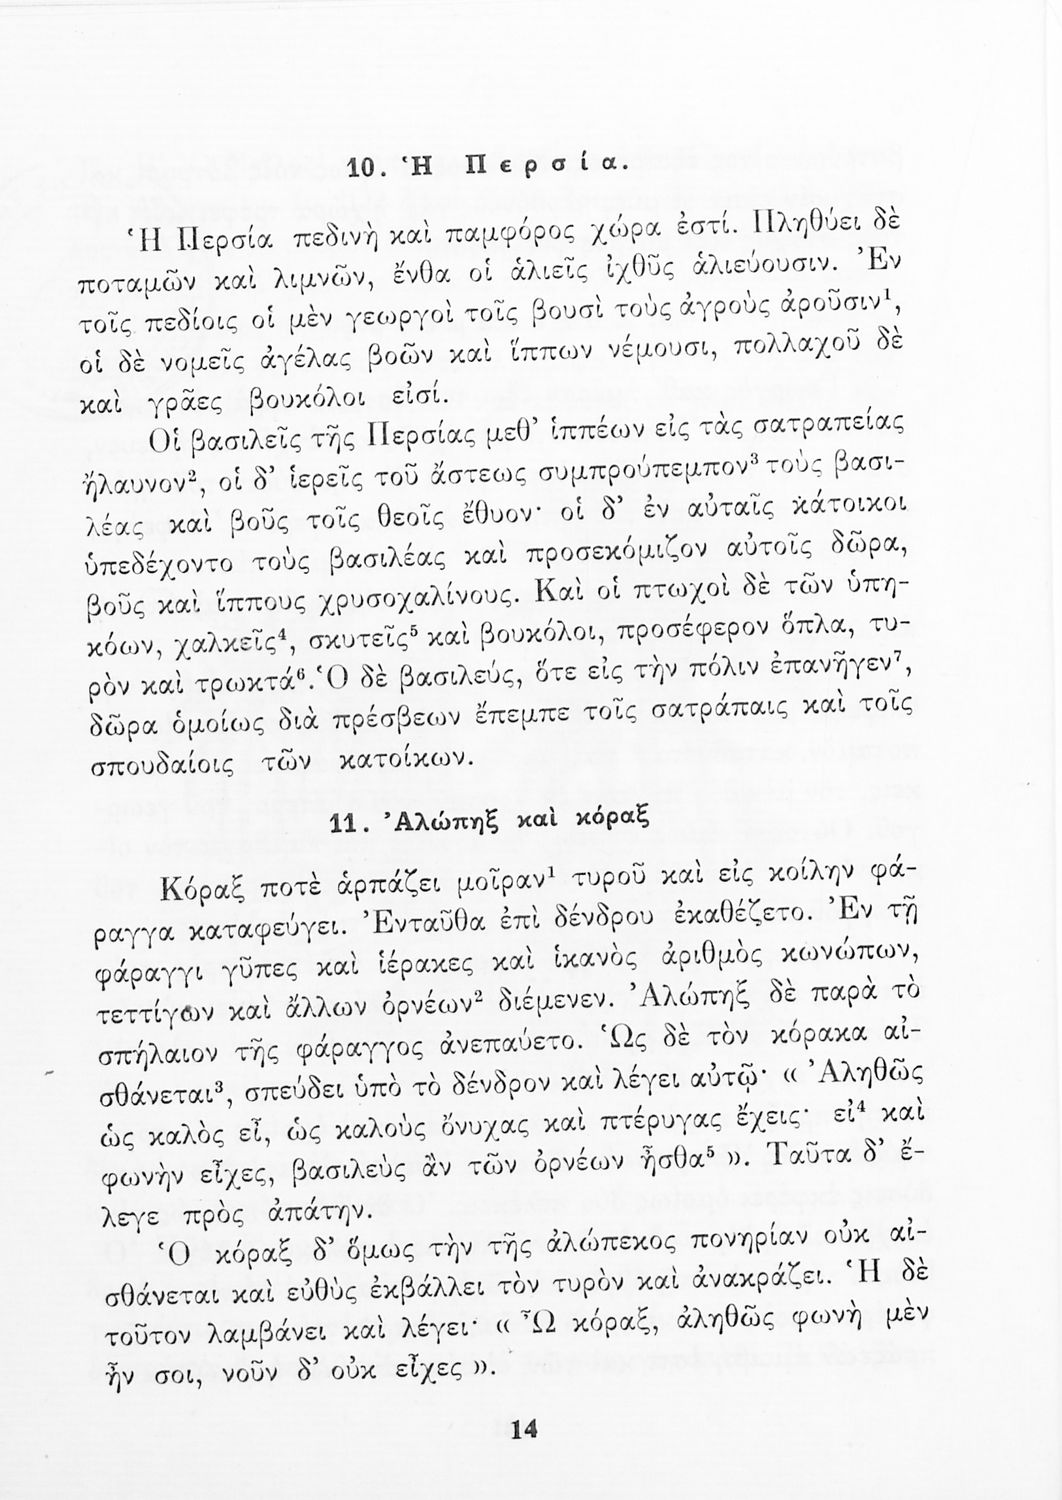 10. Ἡ Περσία.
Ἡ Περσία πεδινὴ καὶ παμφόρος χώρα ἐστί. Πληθύει δὲ
ποταμῶν καὶ λιμνῶν, ἔνθα οἱ ἁλιεῖς ἰχθῦς ἁλιεύουσιν. Ἐν
τοῖς πεδίοις οἱ μὲν γεωργοὶ τοῖς βουσὶ τοὺς ἀγροὺς ἀροῦσιν¹,
οἱ δὲ νομεῖς ἀγέλας βοῶν καὶ ἵππων νέμουσι, πολλαχοῦ δὲ
καὶ γρᾶες βουκόλοι εἰσί.
Οἱ βασιλεῖς τῆς Περσίας μεθ’ ἱππέων εἰς τὰς σατραπείας
ἤλαυνον², οἱ δ’ ἱερεῖς τοῦ ἄστεως συμπρούπεμπον³ τοὺς βασι-
λέας καὶ βοῦς τοῖς θεοῖς ἔθυον· οἱ δ’ ἐν αὐταῖς κάτοικοι
ὑπεδέχοντο τοὺς βασιλέας καὶ προσεκόμιζον αὐτοῖς δῶρα,
βοῦς καὶ ἵππους χρυσοχαλίνους. Καὶ οἱ πτωχοὶ δὲ τῶν ὑπη-
κόων, χαλκεῖς⁴, σκυτεῖς⁵ καὶ βουκόλοι, προσέφερον ὅπλα, τυ-
ρὸν καὶ τρωκτά⁶. Ὁ δὲ βασιλεύς, ὅτε εἰς τὴν πόλιν ἐπανῆγεν⁷,
δῶρα ὁμοίως διὰ πρέσβεων ἔπεμπε τοῖς σατράπαις καὶ τοῖς
σπουδαίοις τῶν κατοίκων.
11. Ἀλώπηξ καὶ κόραξ
Κόραξ ποτὲ ἁρπάζει μοῖραν¹ τυροῦ καὶ εἰς κοίλην φά-
ραγγα καταφεύγει. Ἐνταῦθα ἐπὶ δένδρου ἐκαθέζετο. Ἐν τῇ
φάραγγι γῦπες καὶ ἱέρακες καὶ ἱκανὸς ἀριθμὸς κωνώπων,
τεττίγων καὶ ἄλλων ὀρνέων² διέμενεν. Ἀλώπηξ δὲ παρὰ τὸ
σπήλαιον τῆς φάραγγος ἀνεπαύετο. Ὡς δὲ τὸν κόρακα αἰ-
σθάνεται³, σπεύδει ὑπὸ τὸ δένδρον καὶ λέγει αὐτῷ· « Ἀληθῶς
ὡς καλὸς εἶ, ὡς καλοὺς ὄνυχας καὶ πτέρυγας ἔχεις· εἰ⁴ καὶ
φωνὴν εἶχες, βασιλεὺς ἂν τῶν ὀρνέων ἦσθα⁵ ». Ταῦτα δ’ ἔ-
λεγε πρὸς ἀπάτην.
Ὁ κόραξ δ’ ὅμως τὴν τῆς ἀλώπεκος πονηρίαν οὐκ αἰ-
σθάνεται καὶ εὐθὺς ἐκβάλλει τὸν τυρὸν καὶ ἀνακράζει. Ἡ δὲ
τοῦτον λαμβάνει καὶ λέγει· « Ὦ κόραξ, ἀληθῶς φωνὴ μὲν
ἦν σοι, νοῦν δ’ οὐκ εἶχες ».
14